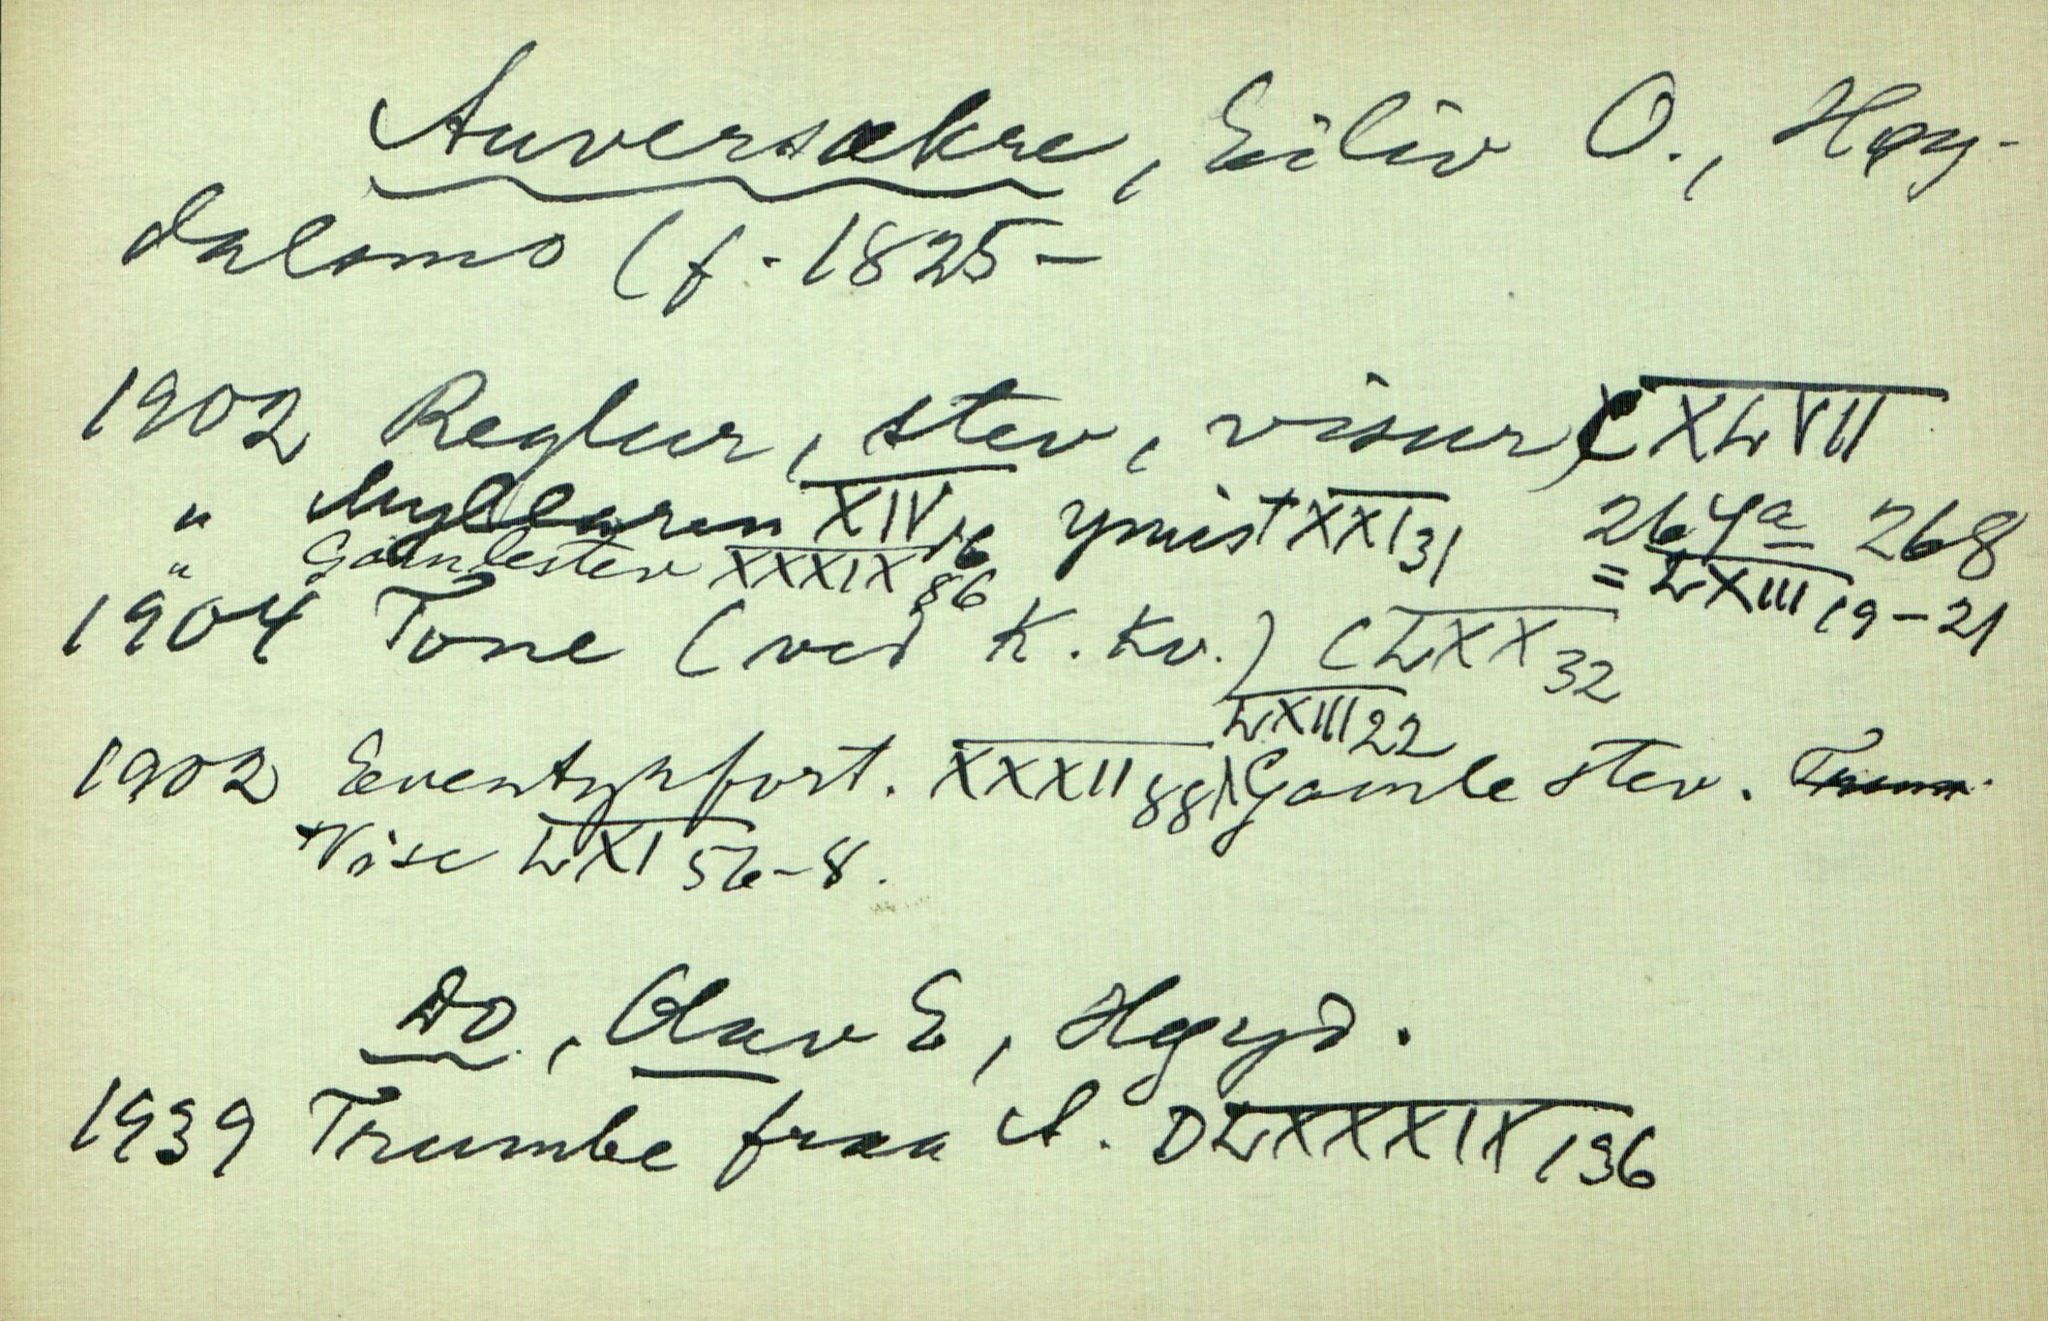 Auversakre, Eiliv O., Høy-
dalsmo (f. 1825 –
1902 Reglur, stev, visur, CXLVII
" Myllaren XIV 16 ymist XXI 31 264a 268
" Gamlestev XXXIX 86 = LXIII 19–21
1904 Tone (ved K. Kv.) CLXX 32
LXIII 22
1902 Eventyrfort. XXXII 88, Gamle stev.
Vise LXI 56–8.
Do, Olav E, Høyd.
1939 Trumbe fraa A. DLXXXIX 136